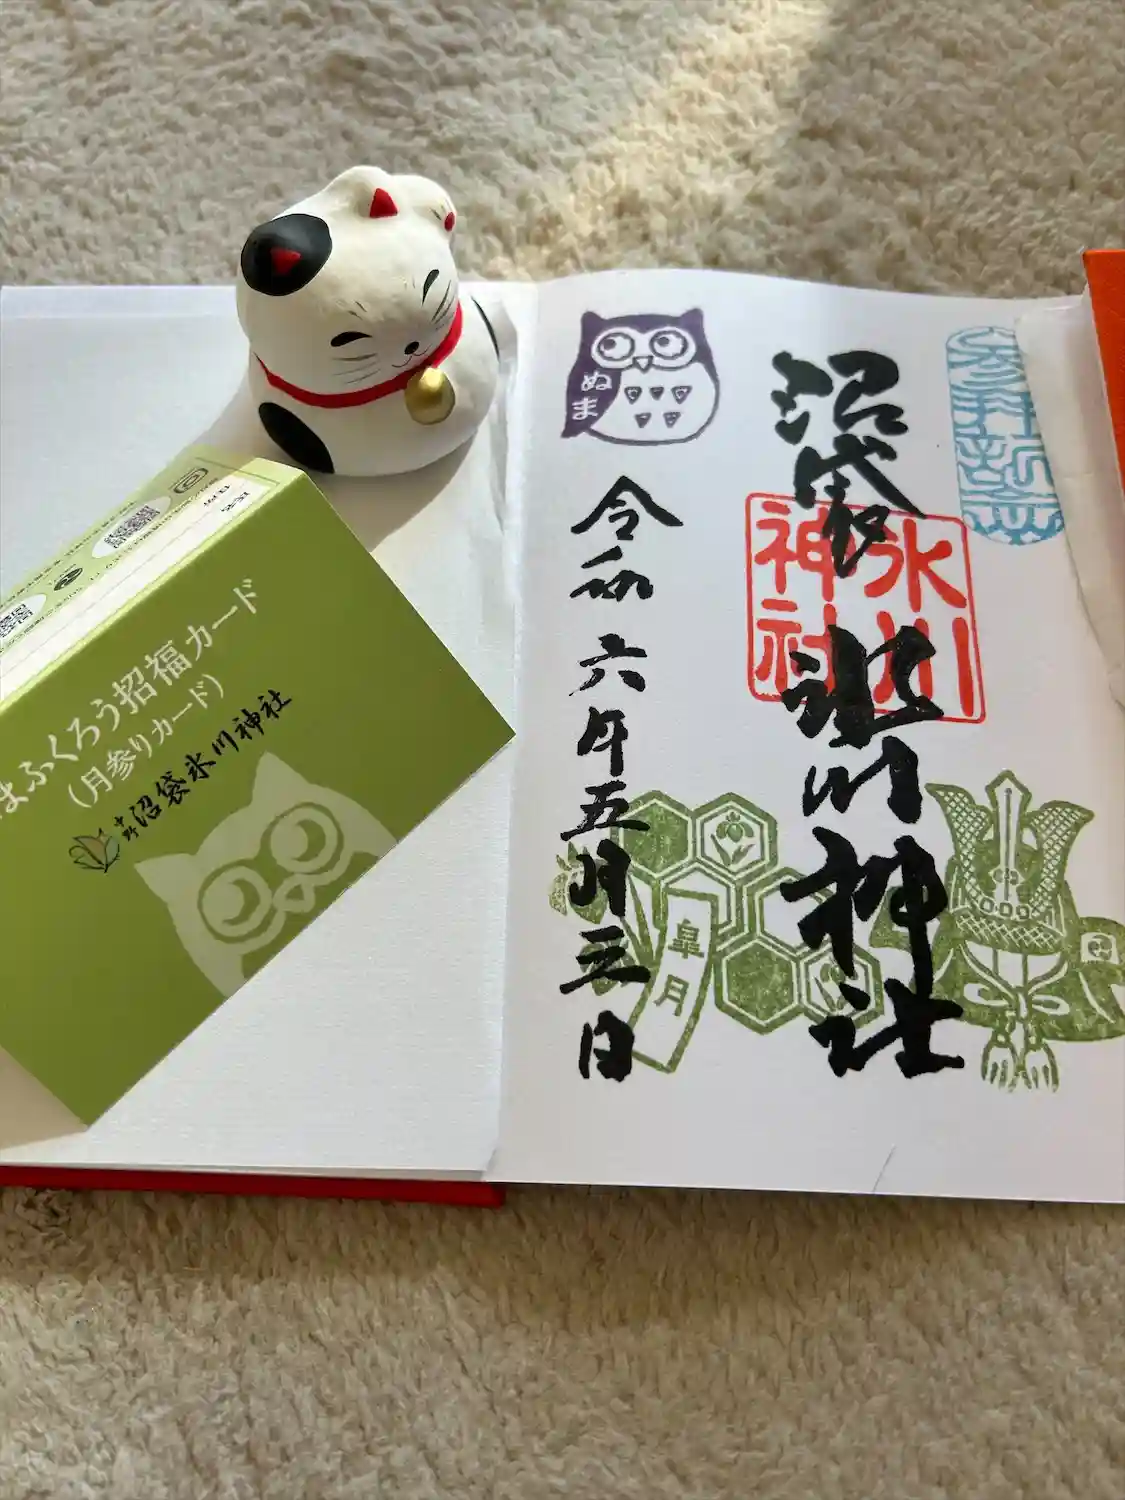 沼袋
氷川神社
氷川
神社
ぬま
皐月
令和六年五月三日
まふくろう招福カード
(月参りカード)
中野沼袋氷川神社
氏名
住所